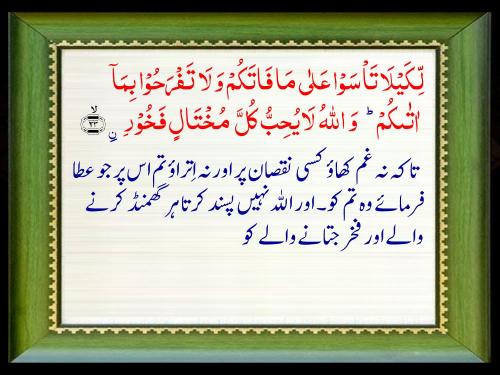 لِّكَيْلَا تَاْسَوْا عَلٰى مَا فَاتَكُمْ وَلَا تَفْرَحُوْا بِمَاۤ
اٰتٰىكُمْ ؕ وَاللّٰهُ لَا يُحِبُّ كُلَّ مُخْتَالٍ فَخُوْرِ ۙ ﴿۲۳﴾
تاکہ نہ غم کھاؤ کسی نقصان پر اور نہ اِتراؤ تم اس پر جو عطا
فرمائے وہ تم کو۔ اور اللہ نہیں پسند کرتا ہر گھمنڈ کرنے
والے اور فخر جتانے والے کو